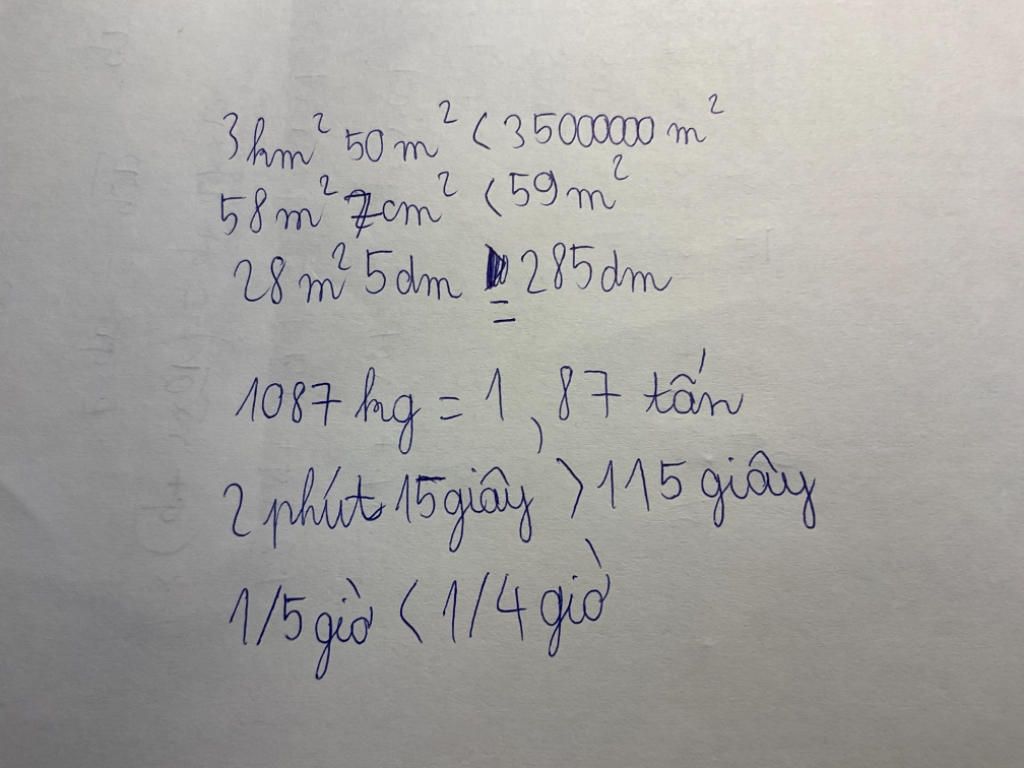 3km² 50m² < 35000000 m²
58m² 7cm² < 59m²
28m² 5dm = 285dm
1087 kg = 1,87 tấn
2 phút 15 giây > 115 giây
1/5 giờ < 1/4 giờ